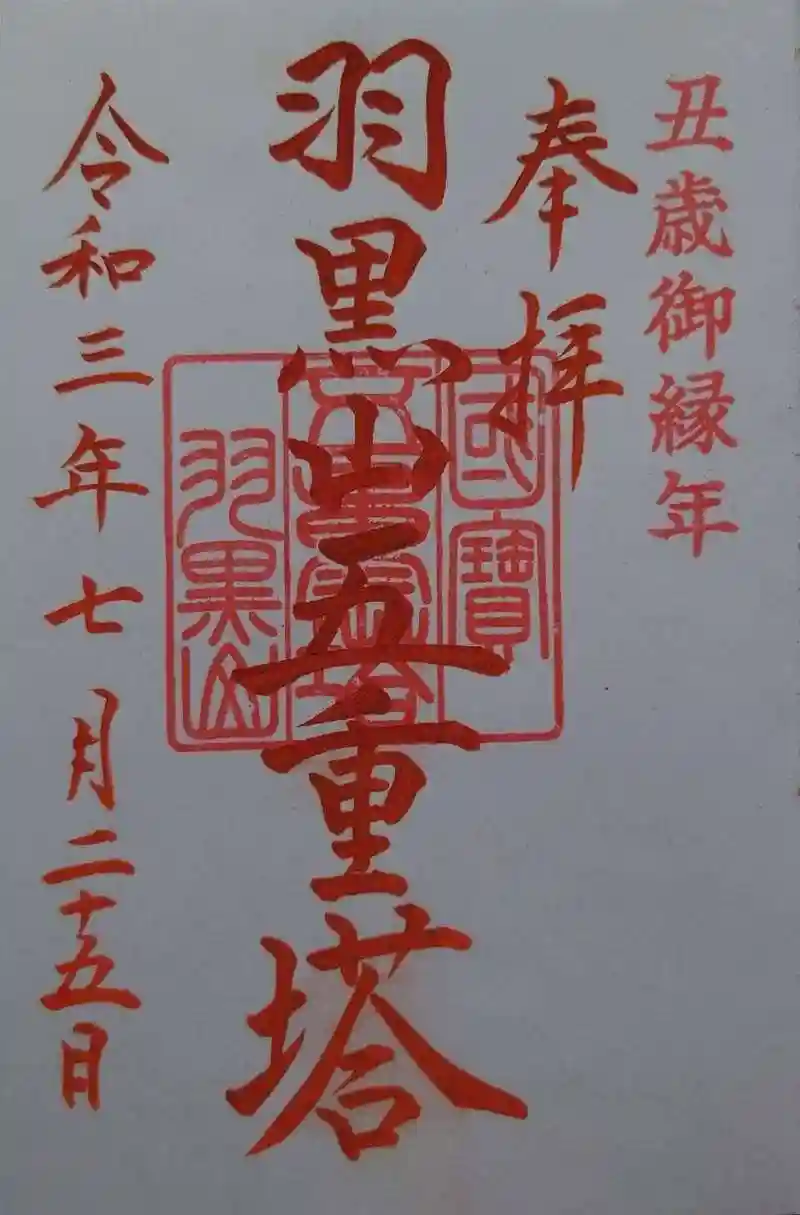 丑歳御縁年
奉拝
羽黒山五重塔
國寶
五重塔
羽黒山
令和三年七月二十五日